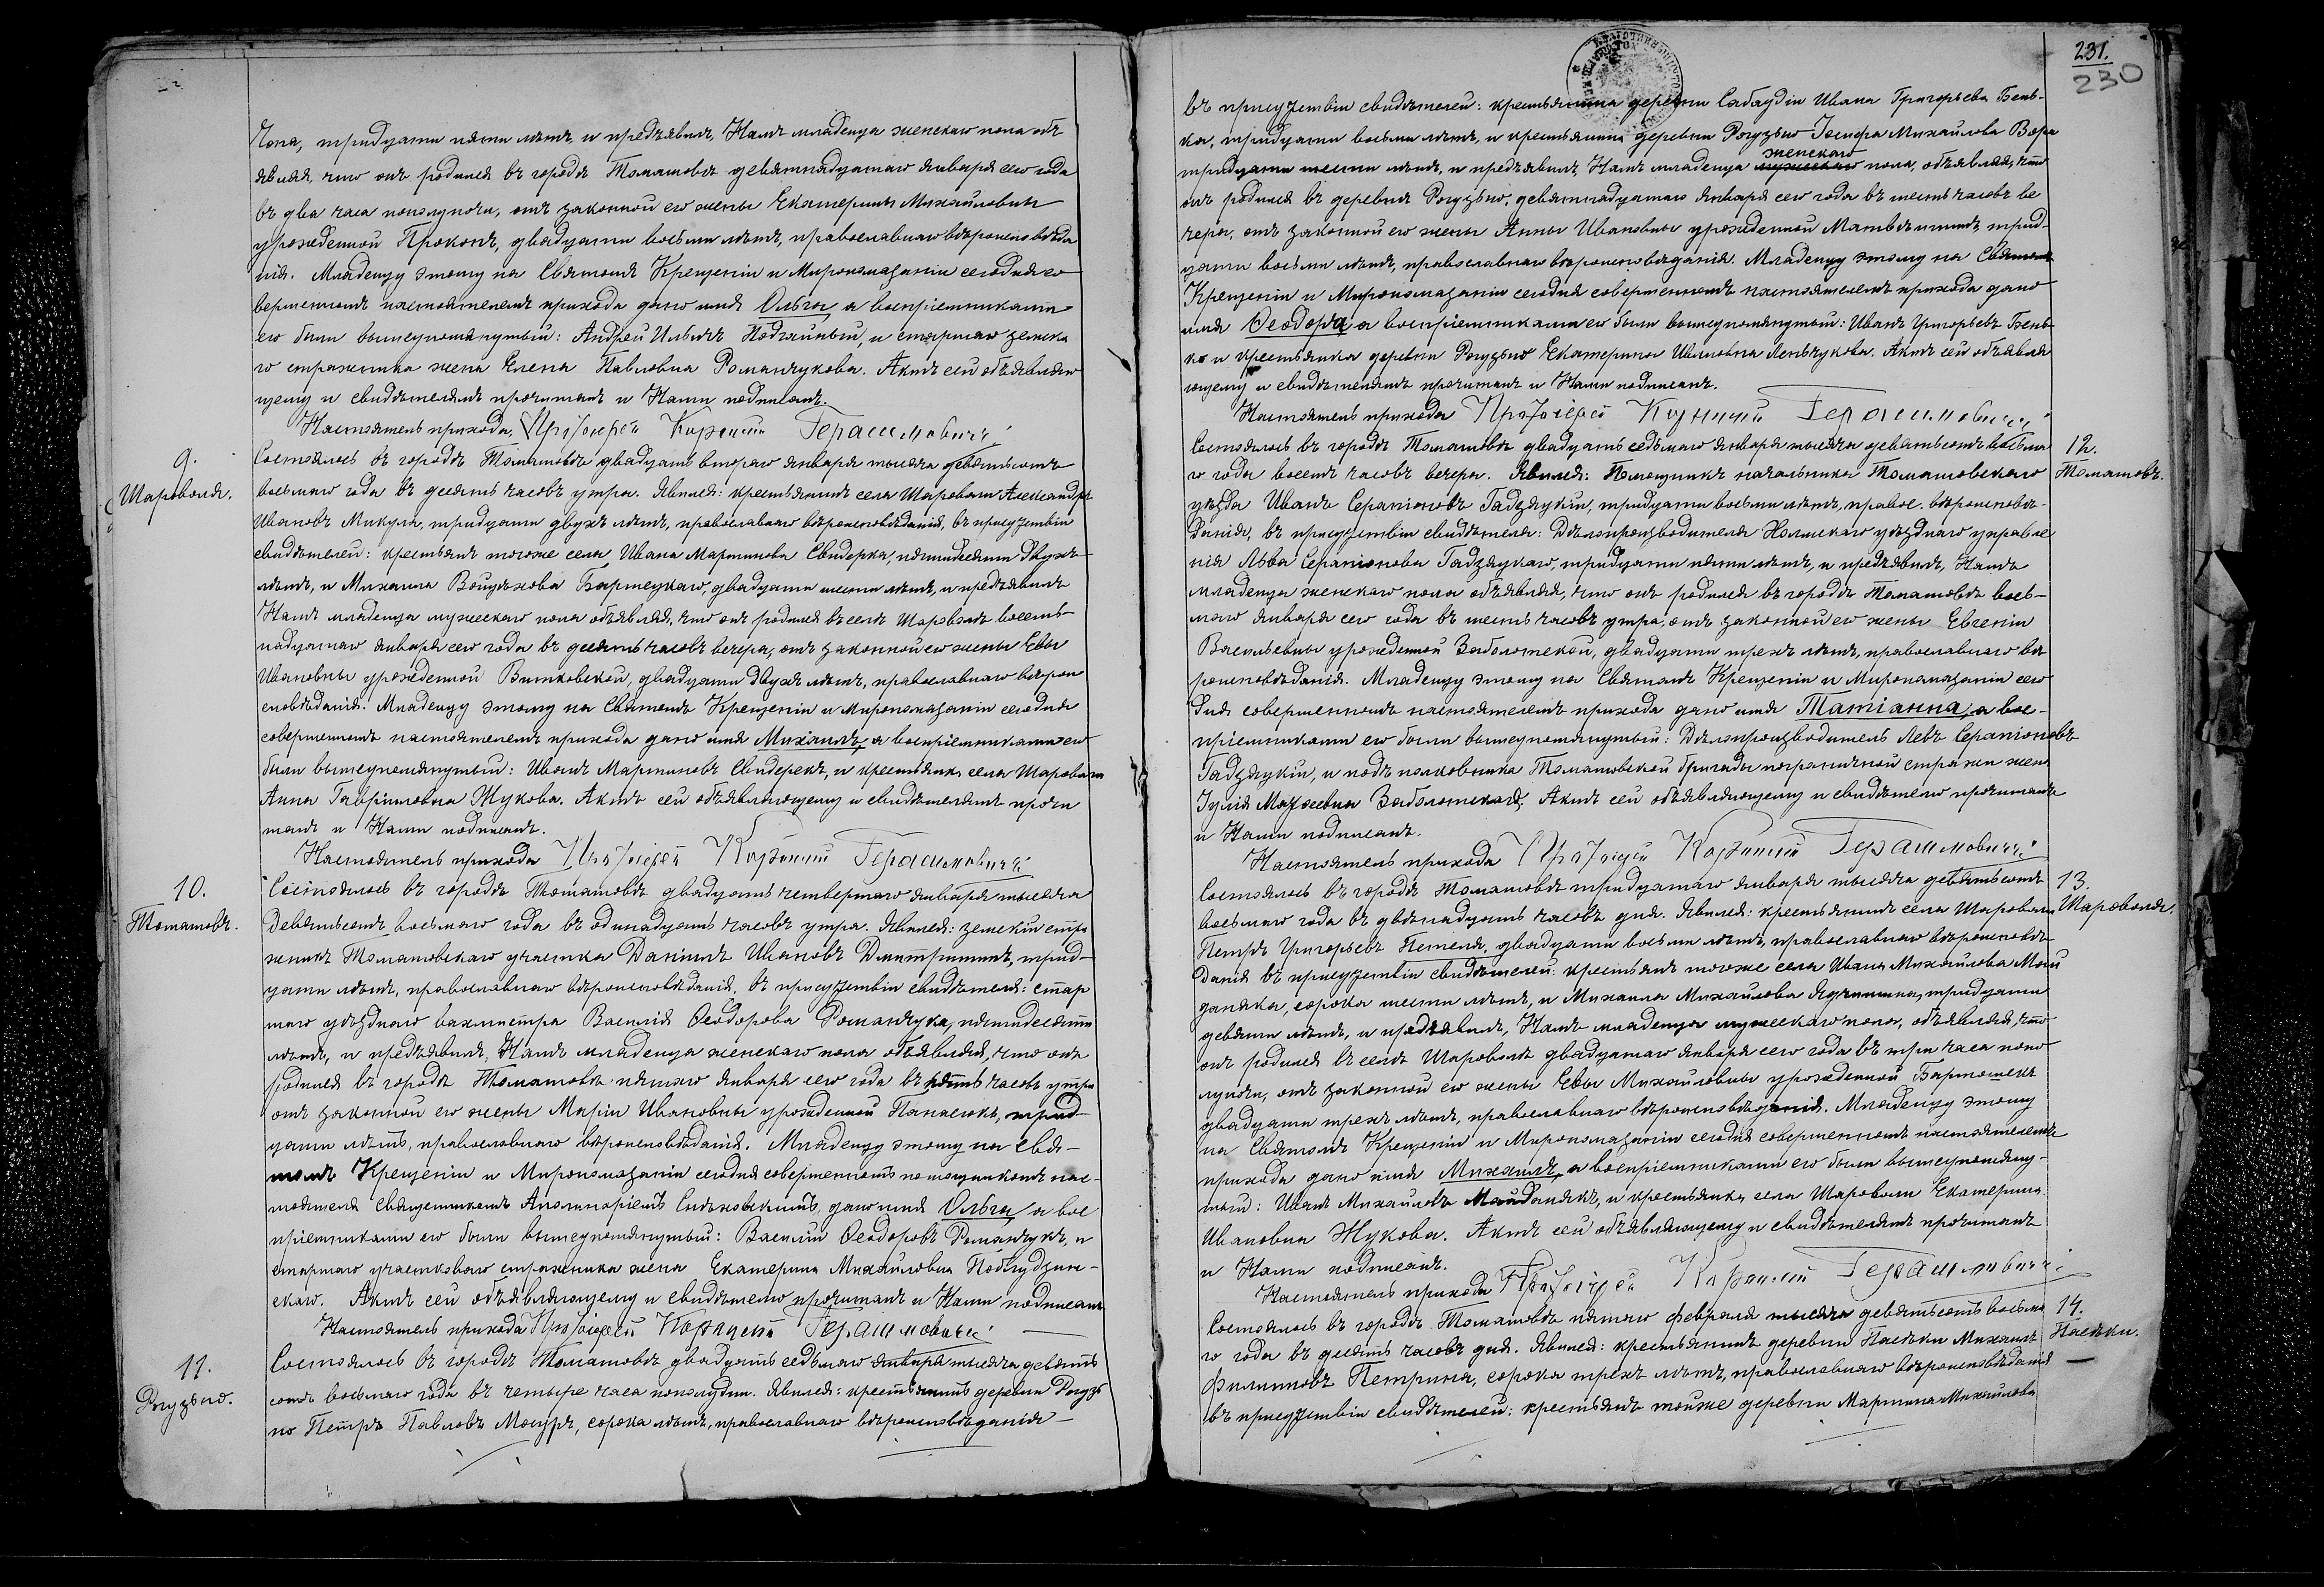 Чона, тридцати пяти лѣтъ, и предъявилъ Намъ младенца женскаго пола объ
являя, что онъ родился въ городѣ Томашовѣ девятнадцатаго Января сего года
въ два часа пополуночи, отъ законной его жены Екатерины Михайловны
урожденной Прокопъ, двадцати восьми лѣтъ, православнаго вѣроисповѣда
нія. Младенцу этому на Святомъ Крещеніи и Миропомазаніи сегодня со
вершенномъ настоятелемъ прихода дано имя Ольга а воспріемниками
его были вышеупомянутый: Андрей Ильичъ и старшаго земска
го стражника жена Елена Павловна Романчукова. Актъ сей объявляю
щему и свидѣтелямъ прочитанъ и Нами подписанъ.
Настоятель прихода, Протоіерей Корнилій Герасимовичъ
9.
Шароволя.
Состоялось въ городѣ Томашовѣ двадцать втораго января тысяча девятьсотъ
восьмаго года въ десять часовъ утра. Явился: крестьянинъ села Шароволи Александръ
Ивановъ Микула, тридцати двухъ лѣтъ, православнаго вѣроисповѣданія, въ присутствіи
свидѣтелей: крестьянъ тогоже села Ивана Мартинова Свидерка, пятидесяти двухъ
лѣтъ, и Михаила Войцѣхова двадцати шести лѣтъ, и предъявилъ
Намъ младенца мужескаго пола объявляя, что онъ родился въ селѣ Шароволѣ восемь-
надцатаго января сего года въ десять часовъ вечера, отъ законной его жены Евы
Ивановны урожденной Витковской, двадцати двухъ лѣтъ, православнаго вѣрои
сповѣданія. Младенцу этому на Святомъ Крещеніи и Миропомазаніи сегодня
совершенномъ настоятелемъ прихода дано имя Михаилъ, а воспріемниками его
были вышеупомянутый: Иванъ Мартиновъ Свидерекъ, и крестьянка села Шароволи
Анна Гавріиловна Жукова. Актъ сей объявляющему и свидѣтелямъ прочи
танъ и Нами подписанъ.
Настоятель прихода Протоіерей Корнилій Герасимовичъ
10.
Томашовъ.
Состоялось въ городѣ Томашовѣ двадцать четвертаго января тысяча
девятьсотъ восьмаго года въ одинадцать часовъ утра. Явился: земскій стра
жникъ Томашовскаго участка Даніилъ Ивановъ трид-
цати лѣтъ, православнаго вѣроисповѣданія, въ присутствіи свидѣтеля: стар
шаго уѣзднаго вахмистра Василія Ѳеодорова Романчука, пятидесяти
лѣтъ, и предъявилъ Намъ младенца женскаго пола объявляя, что онъ
родился въ городѣ Томашовѣ пятаго января сего года въ пять часовъ утра
отъ законной его жены Маріи Ивановны урожденной Панасюкъ, трид-
цати лѣтъ, православнаго вѣроисповѣданія. Младенцу этому на Свя-
томъ Крещеніи и Миропомазаніи сегодня совершенномъ помощникомъ нас-
тоятеля Священникомъ Аполинаріемъ дано имя Ольга, а вос
пріемниками его были вышеупомянутый: Василій Ѳеодоровъ Романчукъ, и
старшаго участковаго стражника жена Екатерина Михайловна
скаго. Актъ сей объявляющему и свидѣтелю прочитанъ и Нами подписанъ
Настоятель прихода Протоіерей Корнилій Герасимовичъ
11.
Рогузьно.
Состоялось въ городѣ Томашовѣ двадцать седьмаго января тысяча девять
сотъ восьмаго года въ четыре часа пополудни. Явился: крестьянинъ деревни Рогузь
но Петръ Павловъ Мазуръ, сорока лѣтъ, православнаго вѣроисповѣданія
231.
230
въ присутствіи свидѣтелей: крестьянина деревни Сабаудіи Ивана Григорьева Бень-
ка, тридцати восьми лѣтъ, и крестьянина деревни Рогузьно Іосифа Михайлова
тридцати шести лѣтъ, и предъявилъ Намъ младенца мужескаго женскаго пола, объявляя, что
онъ родился въ деревнѣ Рогузьно, девятнадцатаго Января сего года въ шесть часовъ ве
чера, отъ законной его жены Анны Ивановны урожденной трид-
цати восьми лѣтъ, православнаго вѣроисповѣданія. Младенцу этому на Святомъ
Крещеніи и Миропомазаніи сегодня совершенномъ настоятелемъ прихода дано
имя Ѳеодора а воспріемниками его были вышеупомянутый: Иванъ Григорьевъ Бень
ко и крестьянка деревни Рогузьно Екатерина Ивановна Лесѣчукова. Актъ сей объявля
ющему и свидѣтелямъ прочитанъ и Нами подписанъ.
Настоятель прихода Протоіерей Корнилій Герасимовичъ
12.
Томашовъ.
Состоялось въ городѣ Томашовѣ двадцать седьмаго января тысяча девятьсотъ восьма
го года восемь часовъ вечера. Явился: Помощникъ начальника Томашовскаго
уѣзда Иванъ Серапіоновъ Гадзяцкій, тридцати восьми лѣтъ, правос. вѣроисповѣ-
данія, въ присутствіи свидѣтеля: Дѣлопроизводителя Холмскаго уѣзднаго управле
нія Льва Серапіонова Гадзяцкаго, тридцати пяти лѣтъ, и предъявилъ Намъ
младенца женскаго пола объявляя, что онъ родился въ городѣ Томашовѣ вось-
маго января сего года въ шесть часовъ утра, отъ законной его жены Евгеніи
Васильевны урожденной Заболотской, двадцати трехъ лѣтъ, православнаго вѣ
роисповѣданія. Младенцу этому на Святомъ Крещеніи и Миропомазаніи сего
дня совершенномъ настоятелемъ прихода дано имя Татіанна, а вос-
пріемниками его были вышеупомянутый: Дѣлопроизводитель Левъ Серапіоновъ
Гадзяцкій, и подъ полковника Томашовской бригады пограничной стражи жена
Іулія Заболотская. Актъ сей объявляющему и свидѣтелю прочитанъ
и Нами подписанъ.
Настоятель прихода Протоіерей Корнилій Герасимовичъ
13.
Шароволя.
Состоялось въ городѣ Томашовѣ тридцатаго января тысяча девятьсотъ
восьмаго года въ двѣнадцать часовъ дня. Явился: крестьянинъ села Шароволи
Петръ Григорьевъ Петеля, двадцати восьми лѣтъ, православнаго вѣроисповѣ-
данія въ присутствіи свидѣтелей: крестьянъ тогоже села Ивана Михайлова Май
даняка, сорока шести лѣтъ, и Михаила Михайлова тридцати
девяти лѣтъ, и предъявилъ Намъ младенца мужескаго пола, объявляя, что
онъ родился въ селѣ Шароволѣ двадцатаго января сего года въ три часа попо
луночи, отъ законной его жены Евы Михайловны урожденной Бартошекъ
двадцати трехъ лѣтъ, православнаго вѣроисповѣданія. Младенцу этому
на Святомъ Крещеніи и Миропомазаніи сегодня совершенномъ настоятелемъ
прихода дано имя Михаилъ, а воспріемниками его были вышеупомяну-
тый: Иванъ Михайловъ Майданякъ, и крестьянка села Шароволи Екатерина
Ивановна Жукова. Актъ сей объявляющему и свидѣтелямъ прочитанъ
и Нами подписанъ.
Настоятель прихода Протоіерей Корнилій Герасимовичъ
14.
Пасѣки.
Состоялось въ городѣ Томашовѣ пятаго февраля тысяча девятьсотъ восьма
го года въ десять часовъ дня. Явился: крестьянинъ деревни Пасѣки Михаилъ
Филиповъ Петрина, сорока трехъ лѣтъ, православнаго вѣроисповѣданія
въ присутствіи свидѣтелей: крестьянъ тойже деревни Мартина Михайлова